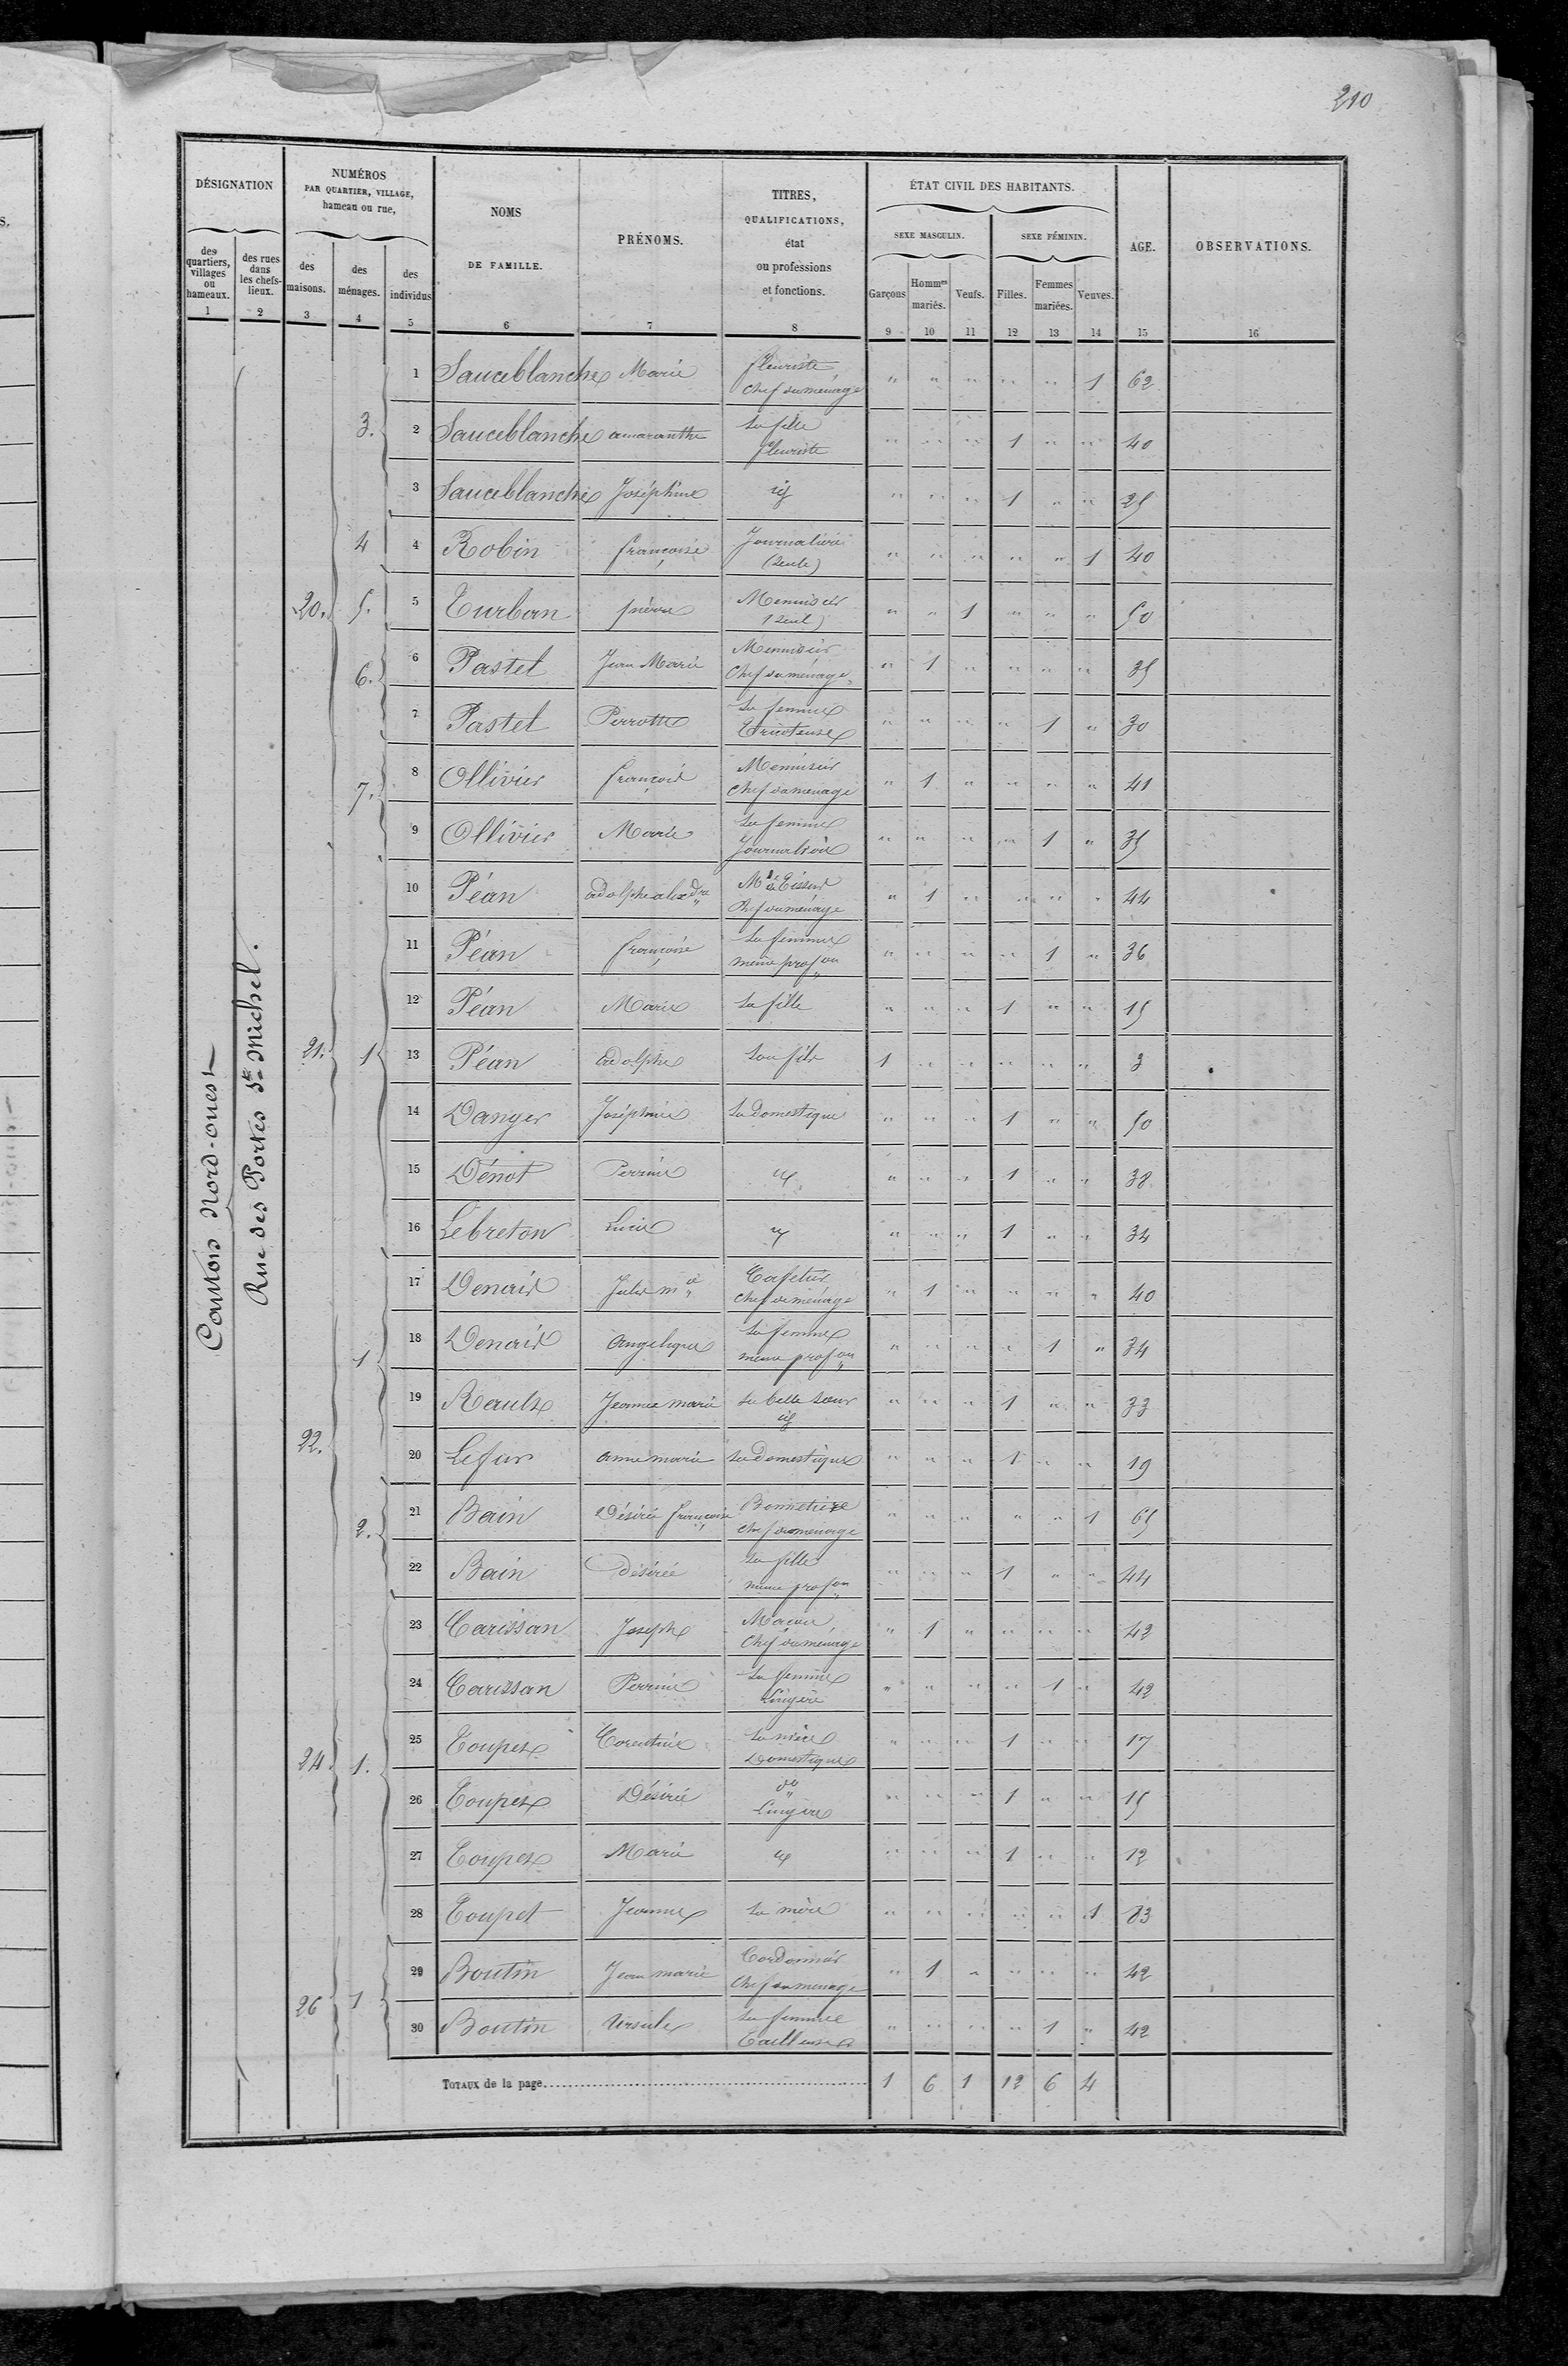 210
DÉSIGNATION
NUMÉROS
PAR QUARTIER, VILLAGE,
hameau ou rue,
NOMS
DE FAMILLE.
PRÉNOMS.
TITRES,
QUALIFICATIONS,
état
ou professions
et fonctions.
ÉTAT CIVIL DES HABITANTS.
SEXE MASCULIN.
SEXE FÉMININ.
AGE.
OBSERVATIONS.
des quartiers, villages ou hameaux.
des rues dans les chefs-lieux.
des maisons.
des ménages.
des individus
Garçons
Hommes mariés.
Veufs.
Filles.
Femmes mariées.
Veuves.
1 2 3 4 5 6 7 8 9 10 11 12 13 14 15 16
Canton Nord-ouest
Rue des Portes St Michel.
1 Sauceblanche Marie fleuriste chef du ménage " " " " " 1 62
3. 2 Sauceblanche amaranthe Sa fille fleuriste " " " 1 " " 40
3 Sauceblanche Joséphine id " " " 1 " " 25
4 4 Robin françoise Journalière (Seule) " " " " " 1 40
20. 5. 5 Turban Menuisier (Seul) " " 1 " " " 50
6. 6 Pastel Jean Marie Menuisier Chef du ménage " 1 " " " " 35
7 Pastel Perrotte Sa femme Tricoteuse " " " " 1 " 30
7. 8 Ollivier françois Menuisier chef du ménage " 1 " " " " 41
9 Ollivier Marie Sa femme Journalière " " " " 1 " 35
10 Péan adolphe alexdre Md de Tissus Chef du ménage " 1 " " " " 44
11 Péan françoise Sa femme même profon " " " " 1 " 36
12 Péan Marie Sa fille " " " 1 " " 15
21. 1 13 Péan adolphe Son fils 1 " " " " " 3
14 Danger Joséphine Sa Domestique " " " 1 " " 50
15 Dénot Perrine id " " " 1 " " 38
16 Lebreton Lucie id " " " 1 " " 34
17 Denais Jules me Cafetier chef du ménage " 1 " " " " 40
1 18 Denais Angelique Sa femme même profon " " " " 1 " 34
19 Reault Jeanne marie Sa belle soeur id " " " 1 " " 33
22. 20 Lefur anne marie Sa Domestique " " " 1 " " 19
2. 21 Bain Désirée françoise Bonnetière chef du ménage " " " " " 1 65
22 Bain Désirée Sa fille même profon " " " 1 " " 44
23 Carissan Joseph Maçon Chef du ménage " 1 " " " " 42
24 Carissan Perrine Sa femme Lingère " " " " 1 " 42
24. 1. 25 Toupet Corentine Sa nièce Domestique " " " 1 " " 17
26 Toupet Désirée do Lingère " " " 1 " " 15
27 Toupet Marie id " " " 1 " " 12
28 Toupet Jeanne Sa mère " " " " " 1 83
26 1 29 Boutin Jean marie Cordonnier Chef du ménage " 1 " " " " 42
30 Boutin Ursule Sa femme Tailleuse " " " " 1 " 42
TOTAUX de la page 1 6 1 12 6 4